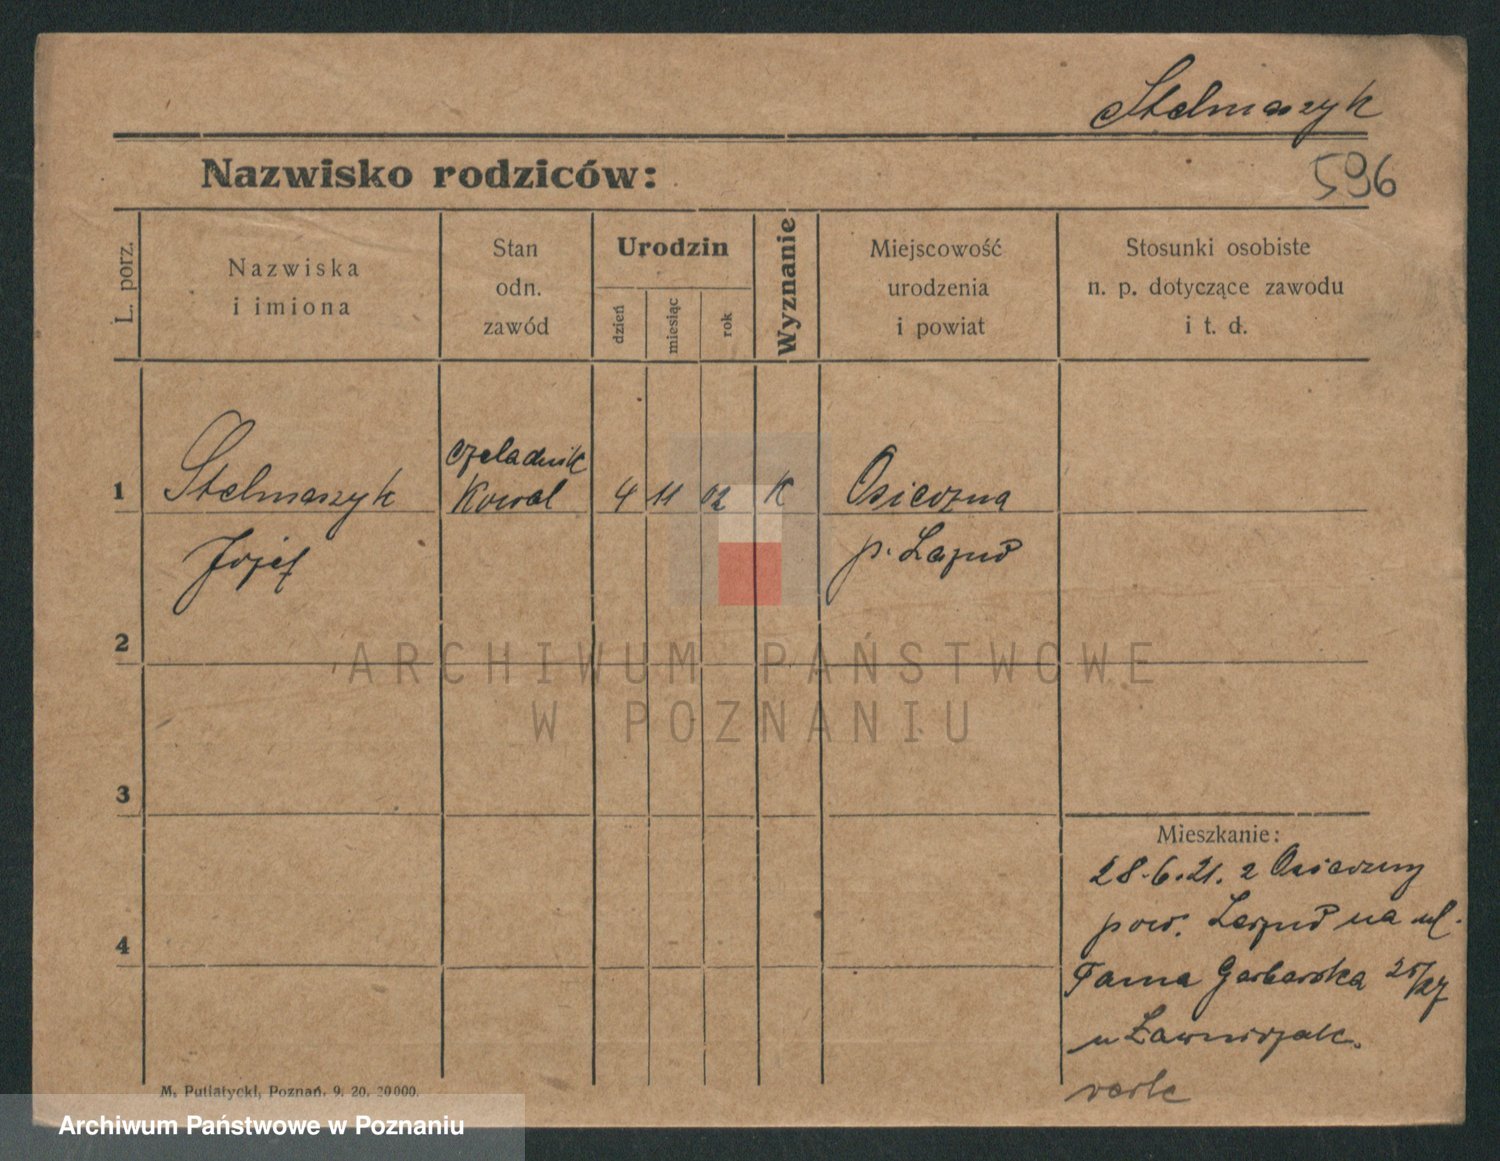 Stelmaszyk
Nazwisko rodziców:
596
L. porz.
Nazwiska
i imiona
Stan
odn.
zawód
Urodzin
dzień
miesiąc
rok
Wyznanie
Miejscowość
urodzenia
i powiat
Stosunki osobiste
n. p. dotyczące zawodu
i t. d.
czeladnik
1 Stelmaszyk Kowal 4 11 02 K Osieczna
Józef p.
2
ARCHIWUM PAŃSTWOWE
W POZNANIU
3
Mieszkanie:
28.6.21. z Osieczny
pow. na ul.
4
Garbarska 25/27
u
M. Putiatycki, Poznań. 9. 20. 20000.
Archiwum Państwowe w Poznaniu